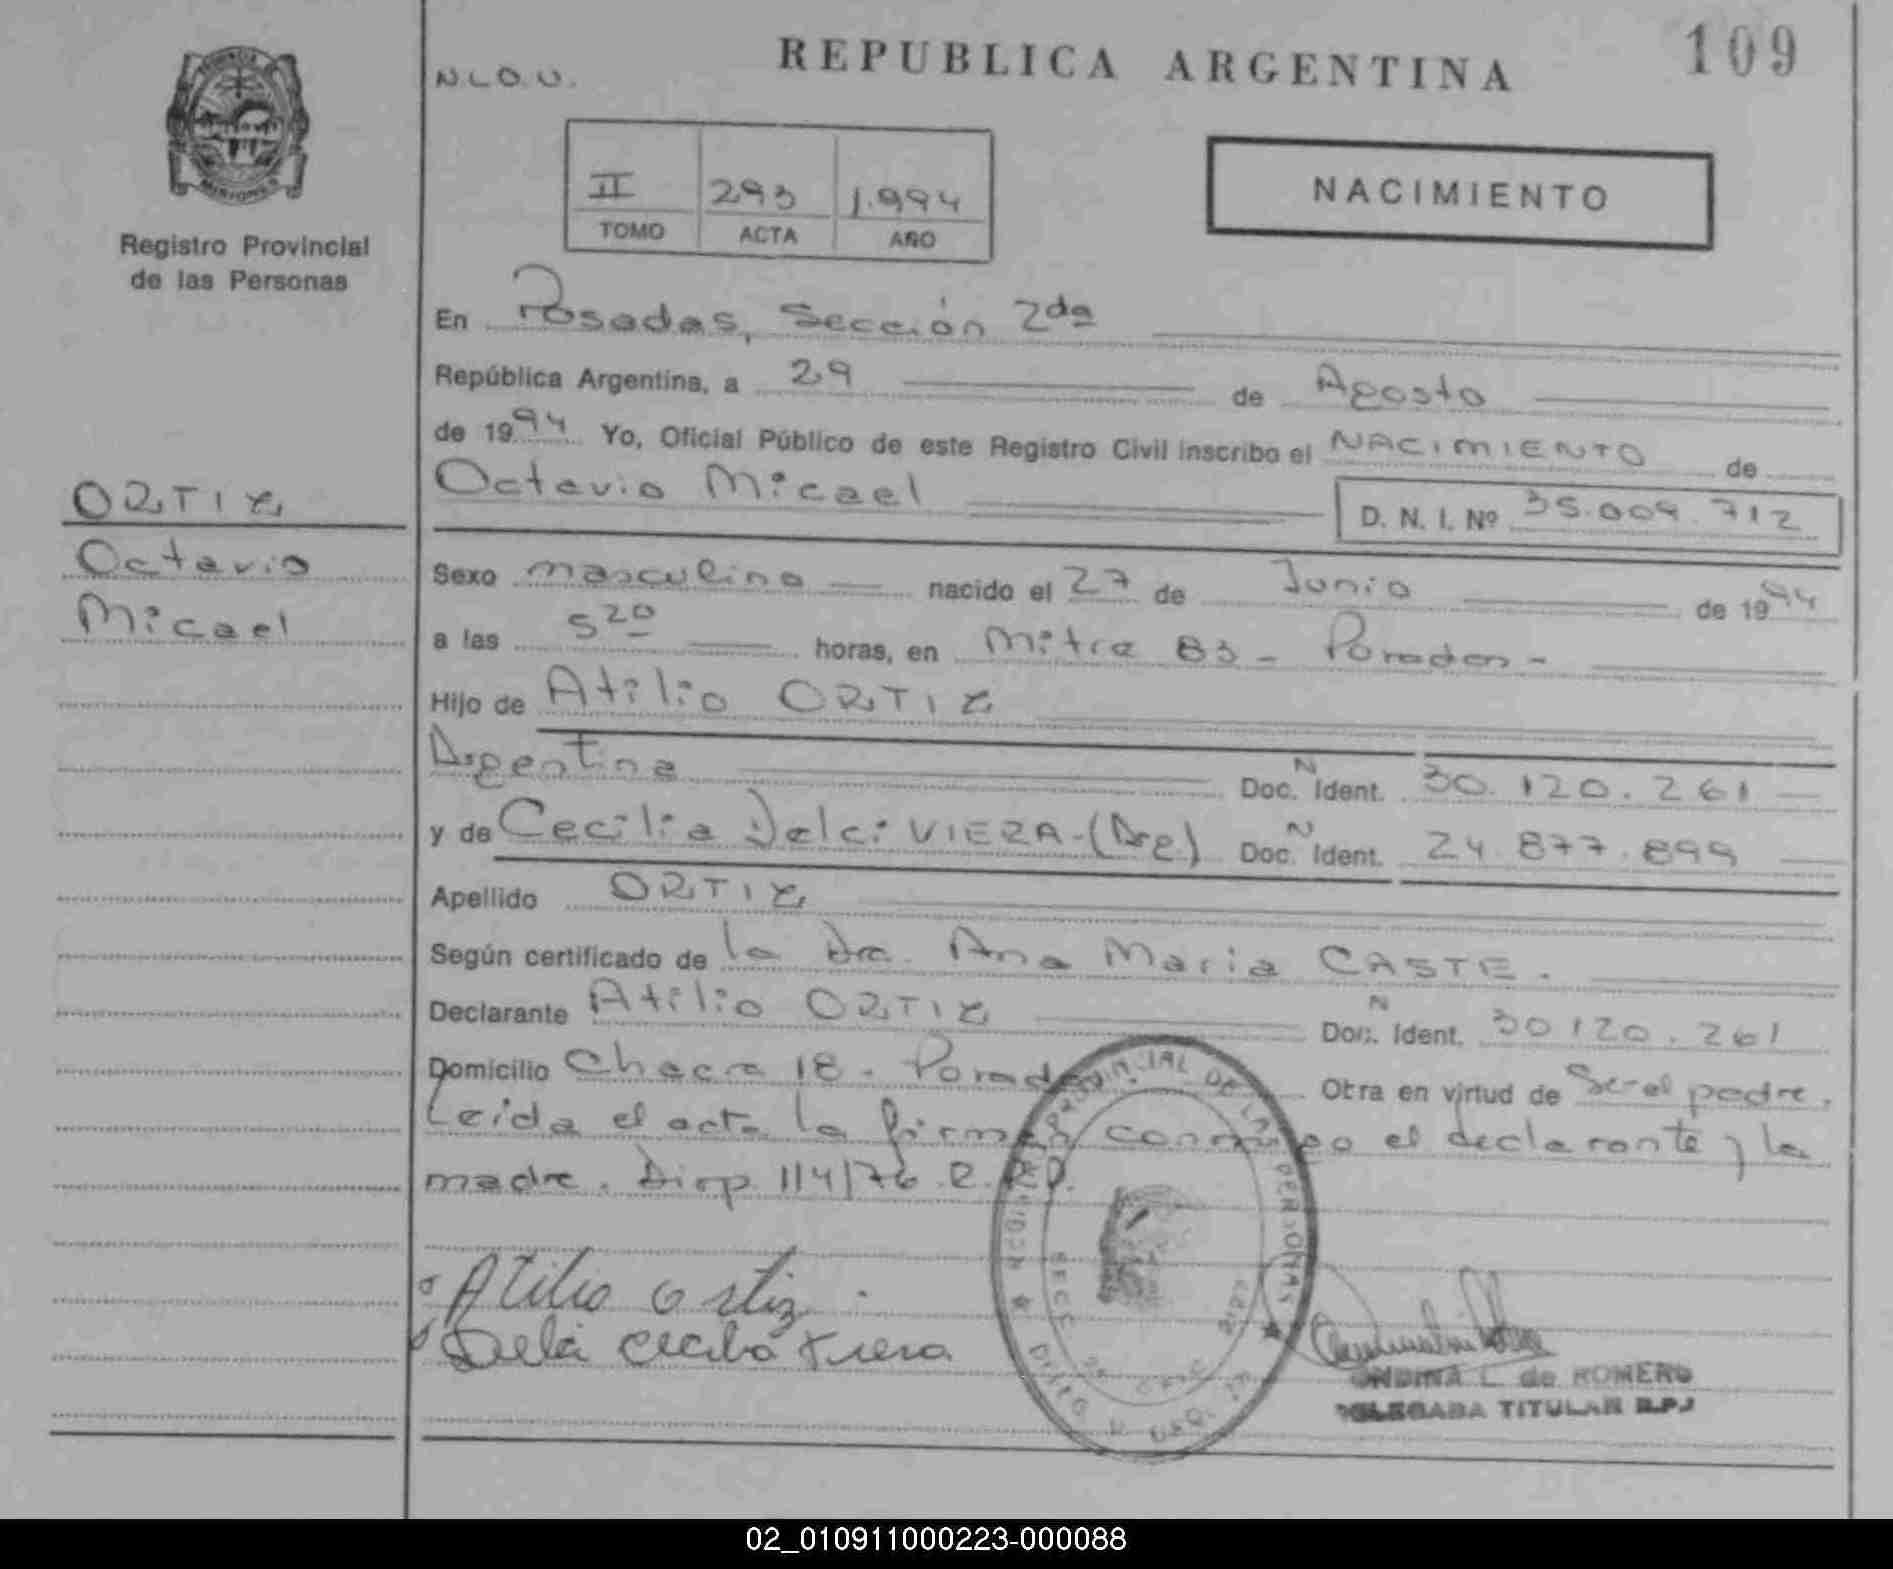 REPUBLICA ARGENTINA
109
N.L.O.U.
PROVINCIA DE
MISIONES
Registro Provincial
de las Personas
II 293 1.994
TOMO ACTA AÑO
NACIMIENTO
En Posadas, Sección 2da
República Argentina, a 29 de Agosto
de 1994 Yo, Oficial Público de este Registro Civil inscribo el NACIMIENTO de
Octavio Micael D. N. I. Nº 35.009.712
ORTIZ
Octavio
Micael
Sexo masculino nacido el 27 de Junio de 1994
a las 5 20 horas, en Mitre 83 - Posadas -
Hijo de Atilio ORTIZ
Argentina Doc. N Ident. 30.120.261
y de Cecilia Delci VIERA - (Arg) Doc. N Ident. 24.877.899
Apellido ORTIZ
Según certificado de la Dra. Ana Maria CASTE.
Declarante Atilio ORTIZ Doc. N Ident. 30120.261
Domicilio Chacra 18 - Posadas. Obra en virtud de Ser el padre.
Leida el acta la firman conmigo el declarante y la
madre. Disp. 114/76. R.P.P.
Atilio Ortiz
PROVINCIAL DE LAS PERSONAS
SECC
ONDINA L. de ROMERO
DELEGADA TITULAR R.P.
02_010911000223-000088